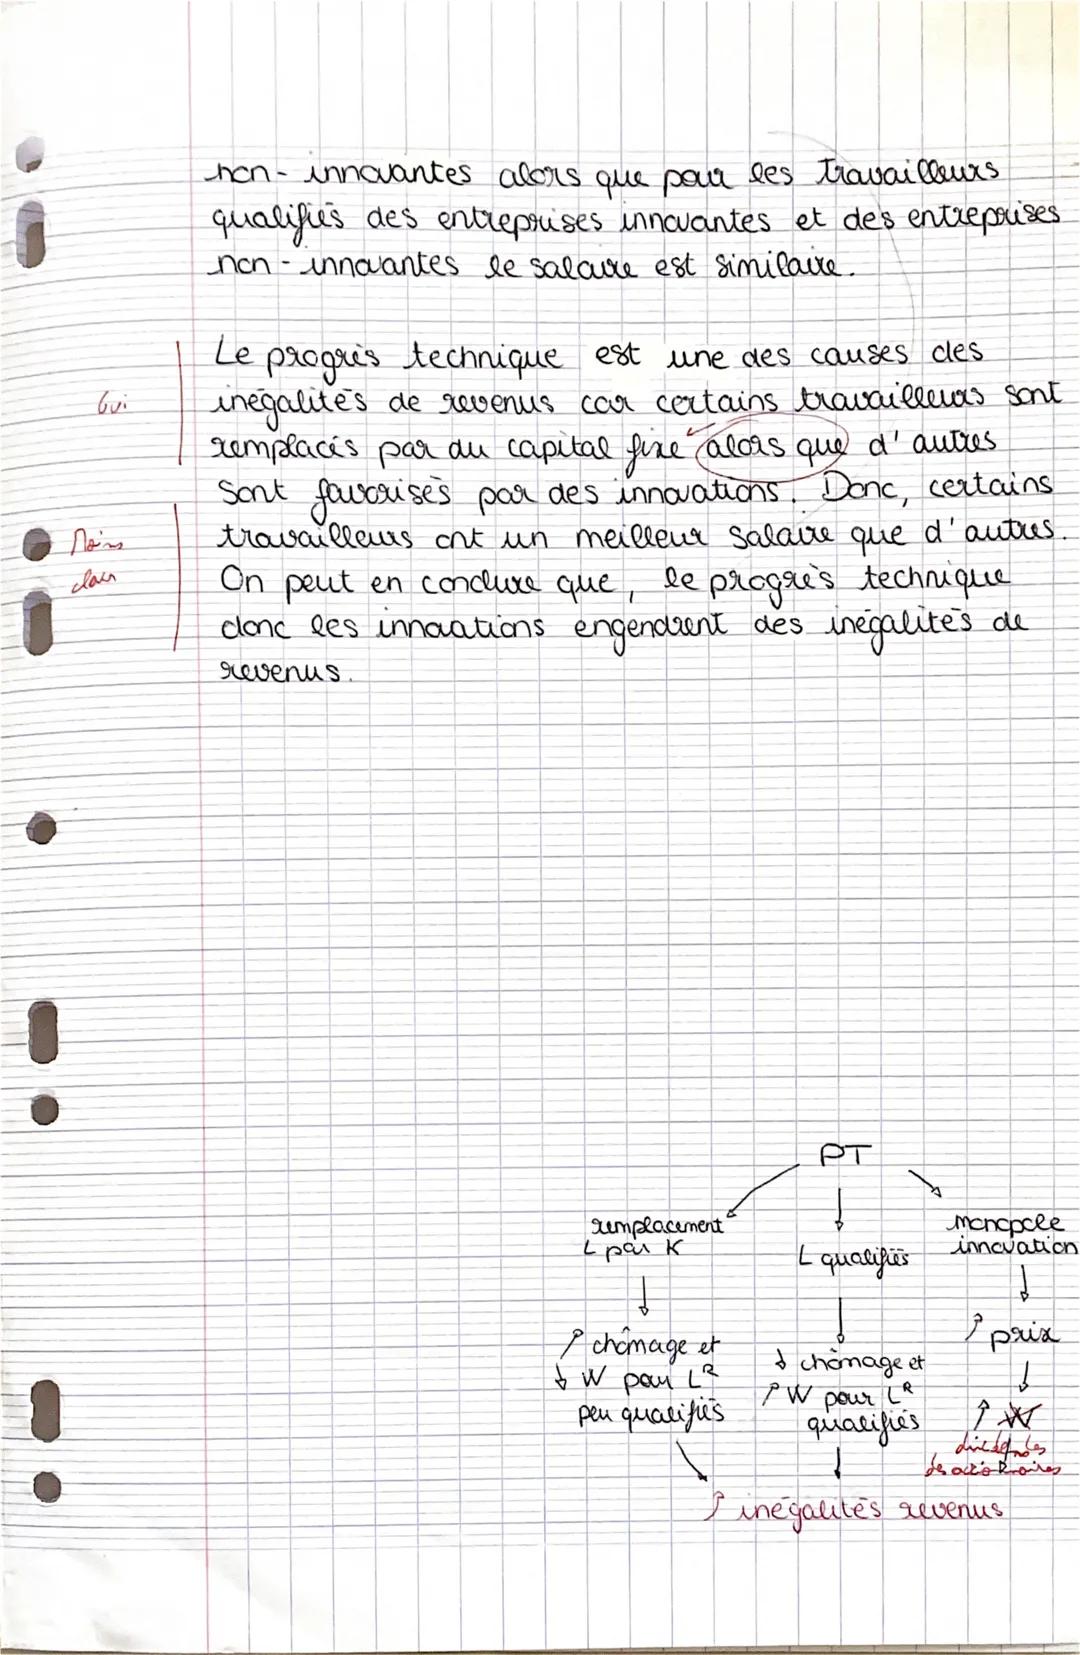 non-innovantes alors que pour les travailleurs
qualifiés des entreprises innovantes et des entreprises
non-innovantes le salaire est similaire.
Le progrès technique est une des causes des
Oui
inégalités de revenus car certains travailleurs sont
remplacés par du capital fixe alors que d'autres
sont favorisés par des innovations. Donc, certains
Moins
travailleurs ont un meilleur salaire que d'autres.
clair
On peut en conclure que, le progrès technique
donc les innovations engendrent des inégalités de
revenus.
PT
remplacement
L par K
L qualifiés
monopole
innovation
↑ chômage et
↓ W pour LR
peu qualifiés
↓ chômage et
↑ W pour LR
qualifiés
↑ prix
↑ W
des actionnaires
↑ inégalités revenus